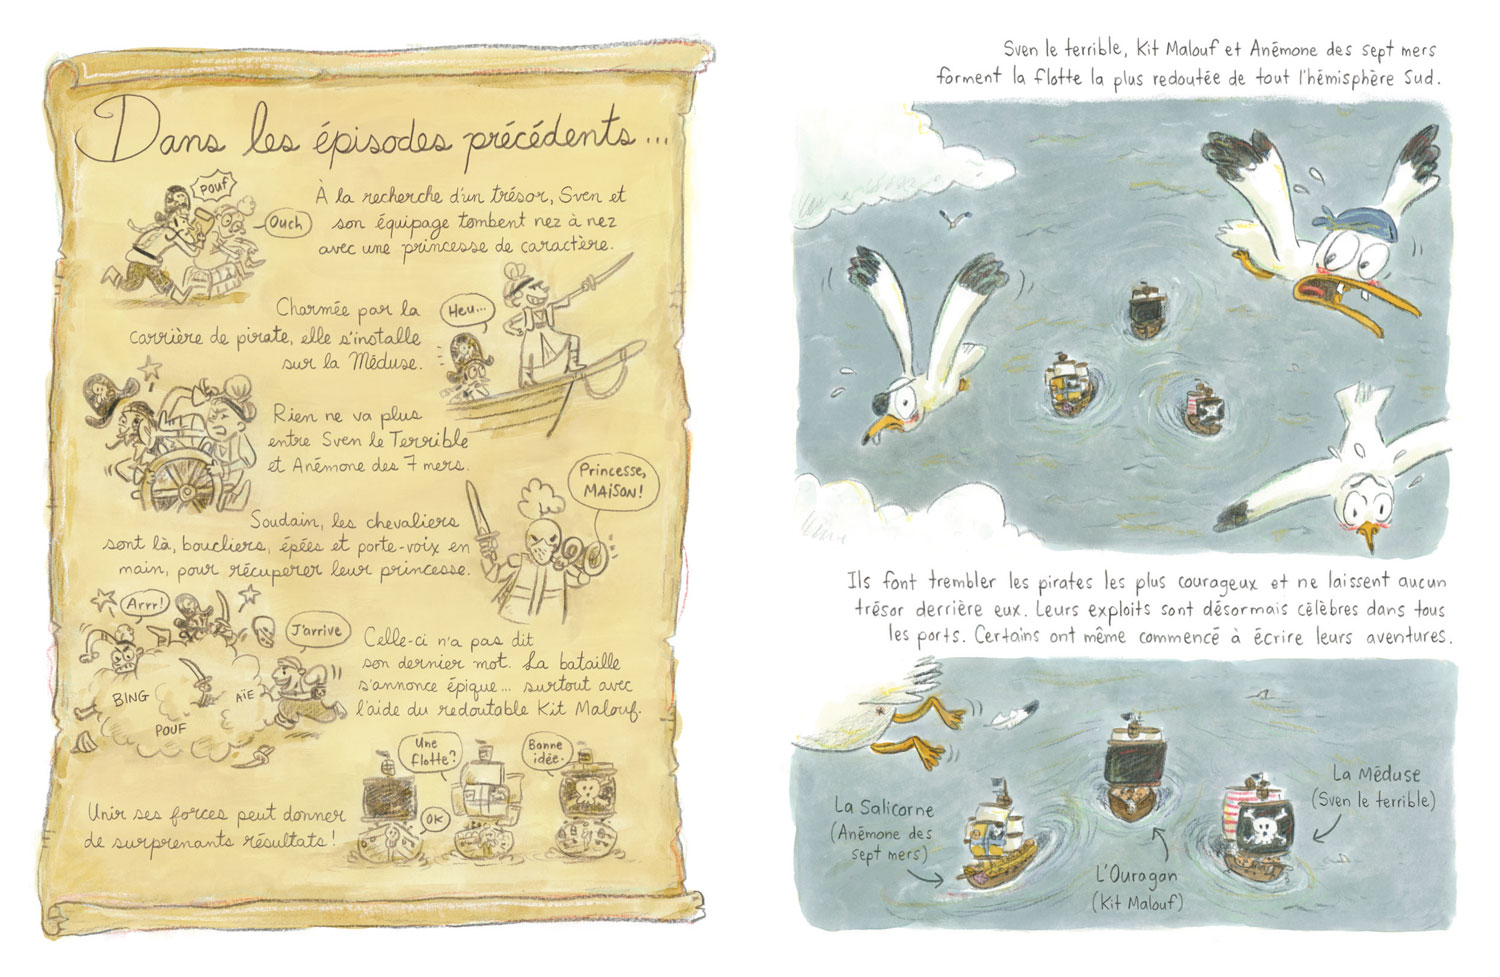 Dans les épisodes précédents...
POUF
Ouch
À la recherche d'un trésor, Sven et
son équipage tombent nez à nez
avec une princesse de caractère.
Charmée par la
carrière de pirate, elle s'installe
sur la Méduse.
Heu...
Rien ne va plus
entre Sven le Terrible
et Anémone des 7 mers.
Princesse,
MAISON!
Soudain, les chevaliers
sont là, boucliers, épées et porte-voix en
main, pour récuperer leur princesse.
Arrr!
J'arrive
BING
AÏE
POUF
Celle-ci n'a pas dit
son dernier mot. La bataille
s'annonce épique... surtout avec
l'aide du redoutable Kit Malouf.
Une
flotte?
Bonne
idée.
OK
Unir ses forces peut donner
de surprenants résultats!
Sven le terrible, Kit Malouf et Anémone des sept mers
forment la flotte la plus redoutée de tout l'hémisphère Sud.
Ils font trembler les pirates les plus courageux et ne laissent aucun
trésor derrière eux. Leurs exploits sont désormais célèbres dans tous
les ports. Certains ont même commencé à écrire leurs aventures.
La Salicorne
(Anémone des
sept mers)
L'Ouragan
(Kit Malouf)
La Méduse
(Sven le terrible)